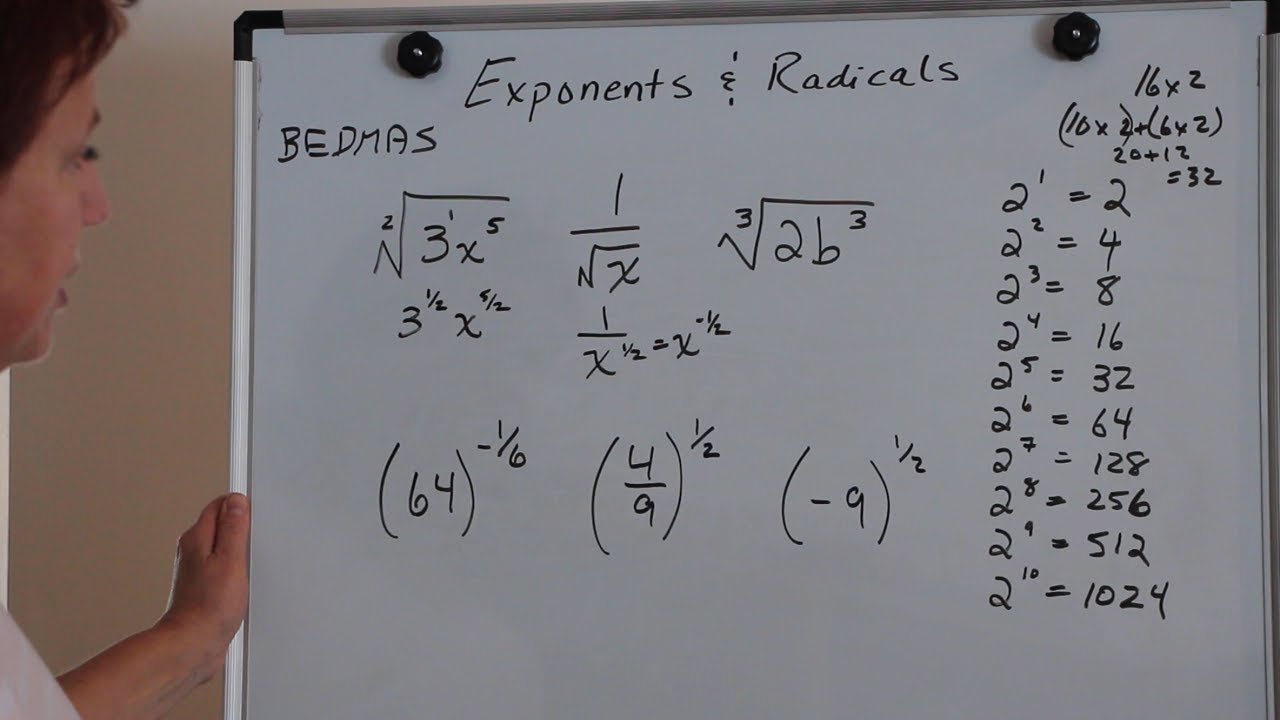 Exponents & Radicals
BEDMAS
²√(3¹x⁵)
1/√x
³√(2b³)
3^(1/2) x^(5/2)
1/x^(1/2) = x^(-1/2)
(64)^(-1/6)
(4/9)^(1/2)
(-9)^(1/2)
16x2
(10x2)+(6x2)
20+12
=32
2¹ = 2
2² = 4
2³ = 8
2⁴ = 16
2⁵ = 32
2⁶ = 64
2⁷ = 128
2⁸ = 256
2⁹ = 512
2¹⁰ = 1024